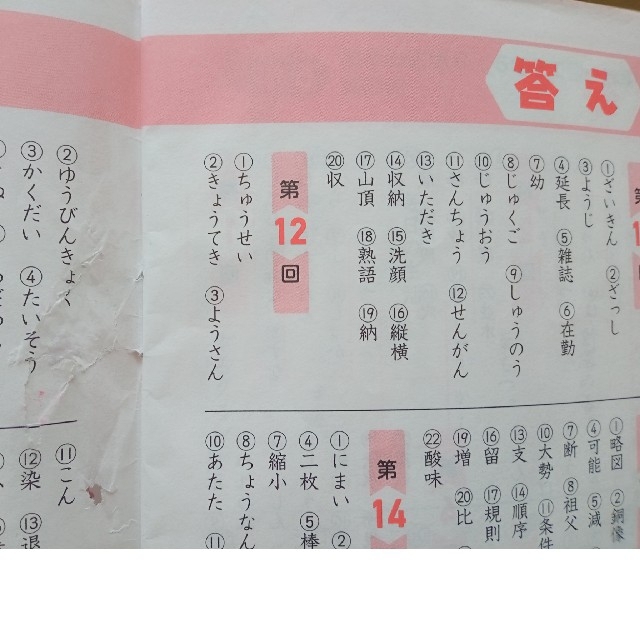 答え
①ざいきん ②ざっし
③ようじ
④延長 ⑤雑誌 ⑥在勤
⑦幼
⑧じゅくご ⑨しゅうのう
⑩じゅうおう
⑪さんちょう ⑫せんがん
⑬いただき
⑭収納 ⑮洗顔 ⑯縦横
⑰山頂 ⑱熟語 ⑲納
⑳収
第12回
①ちゅうせい
②きょうてき ③ようさん
①略図 ②銅像
④可能 ⑤減
⑦断 ⑧祖父
⑩大勢 ⑪条件
⑬支 ⑭順序
⑯留 ⑰規則
⑲増 ⑳比
㉒酸味
第14
①にまい ②
④二枚 ⑤棒
⑦縮小
⑧ちょうなん
⑩あたた ⑪
②ゆうびんきょく
③かくだい ④たいそう
⑪こん
⑫染 ⑬退